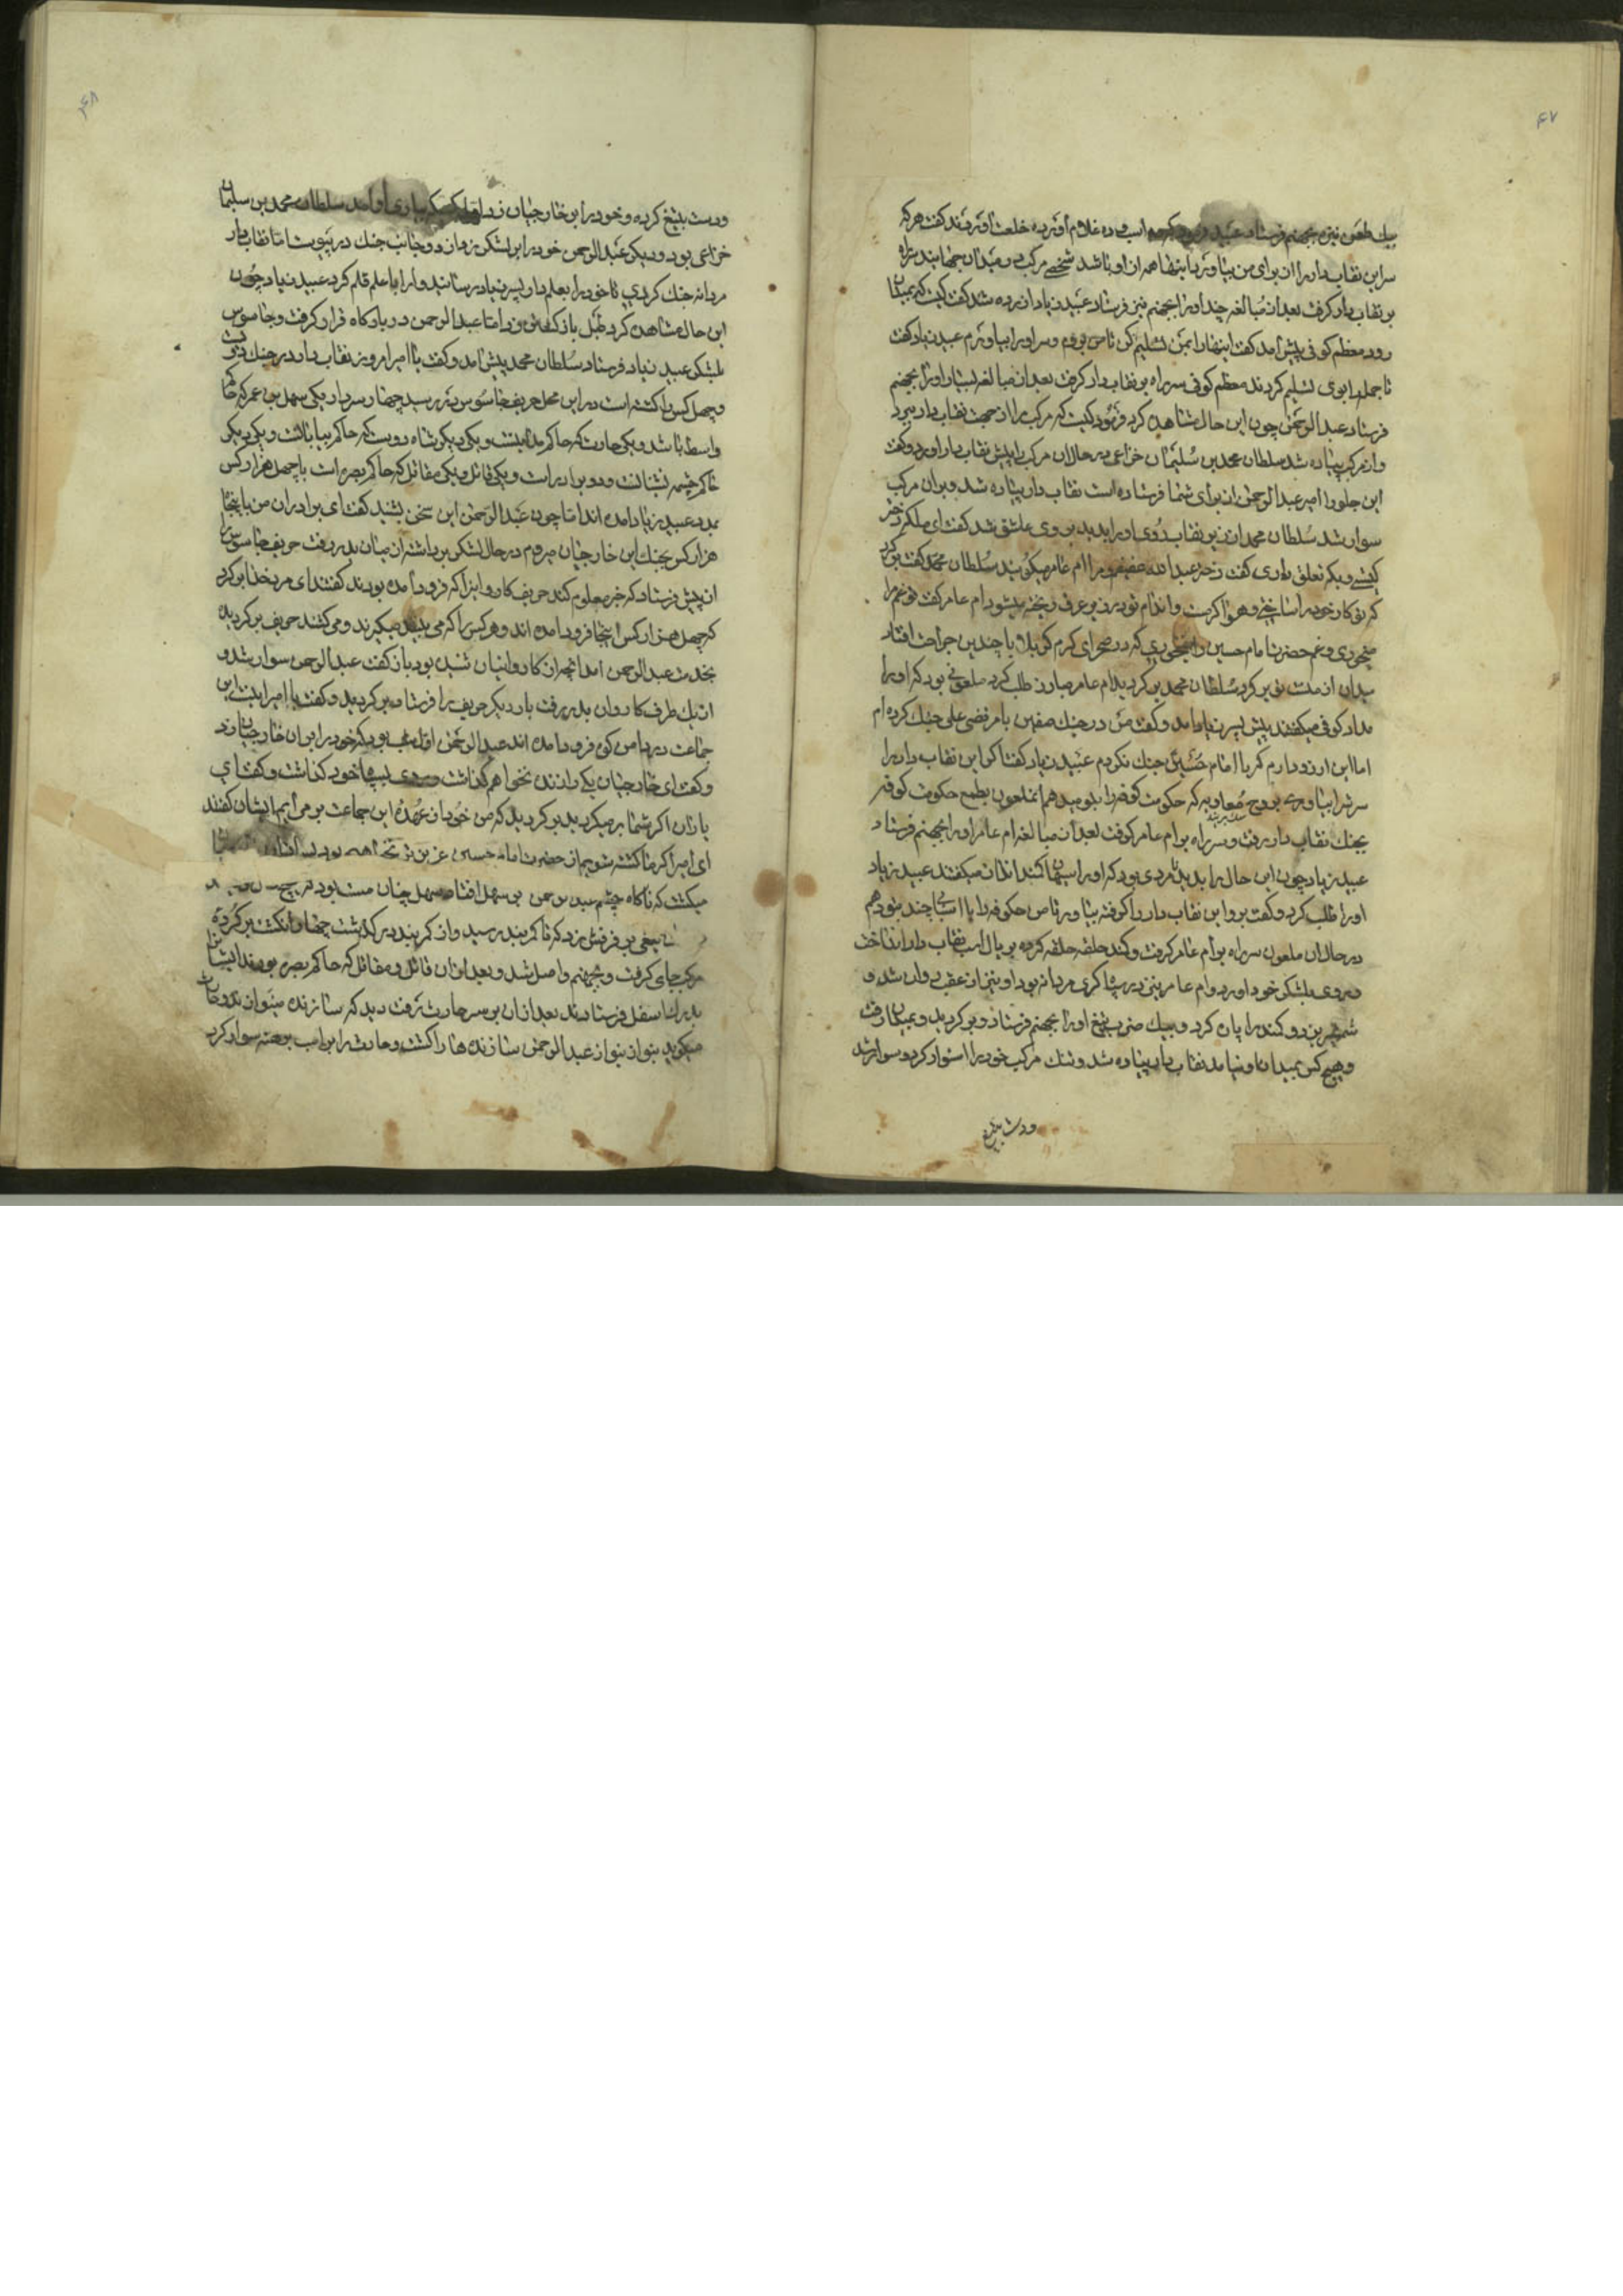 ۴۷
بیك طعن نیزه بجهنم فرستاد عبید اسپ و ده غلام آورده خلعت آوردند گفت هرکه
سر این نقاب‌دار را از برای من بیاورد اینها همه از او باشد شخصی مرکب در میدان جهانید سر راه
بر نقاب‌دار گرفت بعد از مبالغه چند او را بجهنم نیز فرستاد عبید زیاد آزرده شد گفت کیست که بمیدان
رود معظم کوفی پیش آمد گفت اینها را بمن تسلیم کن تا من بروم و سر او را بیاورم عبید زیاد گفت
تا جمله را بوی تسلیم کردند معظم کوفی سر راه بر نقاب‌دار گرفت بعد از مبالغه بسیار او را بجهنم
فرستاد عبدالرحمن چون این حال مشاهده کرد فرمود کیست که مرکب را از جهت نقاب‌دار ببرد
و از مرکب پیاده شد سلطان محمد بن سلیمان خزاعی در حال آن مرکب را پیش نقاب‌دار آورد و گفت
این جلو را امیر عبدالرحمن از برای شما فرستاده است نقاب‌دار پیاده شد و بر آن مرکب
سوار شد سلطان محمد از زیر نقاب روی او را بدید بر وی عاشق شد گفت ای ملکه دختر
کیستی و بکه تعلق داری گفت دختر عبدالله عفیفم و مرا ام عامر میگویند سلطان محمد گفت برگرد
که تو کار خود را ساختی و هوا گرمست و اندام تو در زیر عرق ریخته میشود ام عامر گفت تو غم مرا
میخوری و غم حضرت امام حسین را نمیخوری که در صحرای گرم کربلا با چندین جراحت افتاد
میدان از منست تو برگرد سلطان محمد برگردید ام عامر مبارز طلب کرد ملعونی بود که او را
مداد کوفی میگفتند پیش پسر زیاد آمد و گفت من در جنك صفین با مرتضی علی جنك کرده‌ام
اما این آرزو دارم که با امام حسین جنك نکردم عبید زیاد گفت اگر این نقاب‌دار را
سرش بیاوری بروح معاویه که حکومت کوفه را بتو میدهم آنملعون بطمع حکومت کوفه
بجنك نقاب‌دار رفت و سر راه بر ام عامر گرفت بعد از مبالغه ام عامر او را بجهنم فرستاد
عبید زیاد چون این حال را بدید مردی بود که او را میگفتند عبید زیاد
او را طلب کرد و گفت برو این نقاب‌دار را گرفته بیاور تا من حکم کوفه را با اسپان چند بتو دهم
در حال آن ملعون سر راه بر ام عامر گرفت و کمند حلقه حلقه کرده بر یال اسپ نقاب‌دار انداخت
و روی بلشکر خود آورد و ام عامر نیز در سپاگری مردانه بود او نیز از عقب روان شد و
شمشیر بزد و کمند را پاره کرد و بیك ضرب تیغ او را بجهنم فرستاد و برگردید و بمیدان رفت
و هیچ کس بمیدان او نیامد نقاب‌دار پیاده شد و تنك مرکب خود را استوار کرد و سوار شد
و دست بتیغ
۴۸
و دست بتیغ کرده و خود را برین خارجیان زد اول کسی که بیاری او آمد سلطان محمد بن سلیمان
خزاعی بود و دیگر عبدالرحمن خود را برین لشکر زدند و از دو جانب جنك در پیوست اما نقاب‌دار
مردانه جنك کردی تا خود را بعلم‌دار پسر زیاد رسانید و او را با علم قلم کرد عبید زیاد چون
این حال مشاهده کرد طبل بازگشتن زد اما عبدالرحمن در بارگاه قرار گرفت و جاسوس
بلشکر عبید زیاد فرستاد سلطان محمد پیش آمد و گفت یا امیر امروز نقاب‌دار در جنك دویست
و چهل کس را کشته است در این محل حریف جاسوس در رسید چهار سردار یکی سهل بن عمر که حاکم
واسط باشد و یکی حارث که حاکم مداینست و یکی دیگر شاه رویست که حاکم بیاباتست و یکی دیگر
حاکم چشمه نشانست و دو برادر است و یکی قاتل و یکی مقاتل که حاکم بصره است با چهل هزار کس
بمدد عبید زیاد آمده‌اند اما چون عبدالرحمن این سخن بشنید گفت ای برادران من با پنجاه
هزار کس بجنك این خارجیان میروم در حال لشکر برداشته از میان بدر رفت حریف جاسوس را
از پیش فرستاد که خبر معلوم کند حریف کاروانی را که فرود آمده بودند گفتند ای مرد خدا برگرد
که چهل هزار کس اینجا فرود آمده‌اند و هرکس را که می‌بینند میگیرند و می‌کشند حریف برگردید
بخدمت عبدالرحمن آمد آنچه از کاروانیان شنیده بود باز گفت عبدالرحمن سوار شد و
از یك طرف کاروان بدر رفت بار دیگر حریف را فرستاد برگردید و گفت یا امیر اینست این
جماعت در دامن کوه فرود آمده‌اند عبدالرحمن خود را بر آن خارجیان زد
و گفت ای خارجیان یکی را زنده نخواهم گذاشت خود گذاشت و گفت ای
یاران اگر شما برمیگردید برگردید که من خود از عهده این جماعت برمی‌آیم ایشان گفتند
ای امیر اگر ما کشته شویم از حضرت امام حسین عزیزتر نخواهیم بود
میگشت که ناگاه چشم عبدالرحمن بر سهل افتاد سهل چنان مست بود که هیچ
تیغی بر فرقش زد که تا کمربند رسید و از کمربند درگذشت چهار انگشت بر گرده
مرکب جای گرفت و بجهنم واصل شد و بعد از آن قاتل و مقاتل که حاکم بصره بودند ایشان را
بدرك اسفل فرستادند بعد از آن بر سر حارث رفت دید که سازنده مینوازند و حارث
میگوید بنواز بنواز عبدالرحمن سازنده‌ها را کشت و حارث را بر اسب برهنه سوار کرد